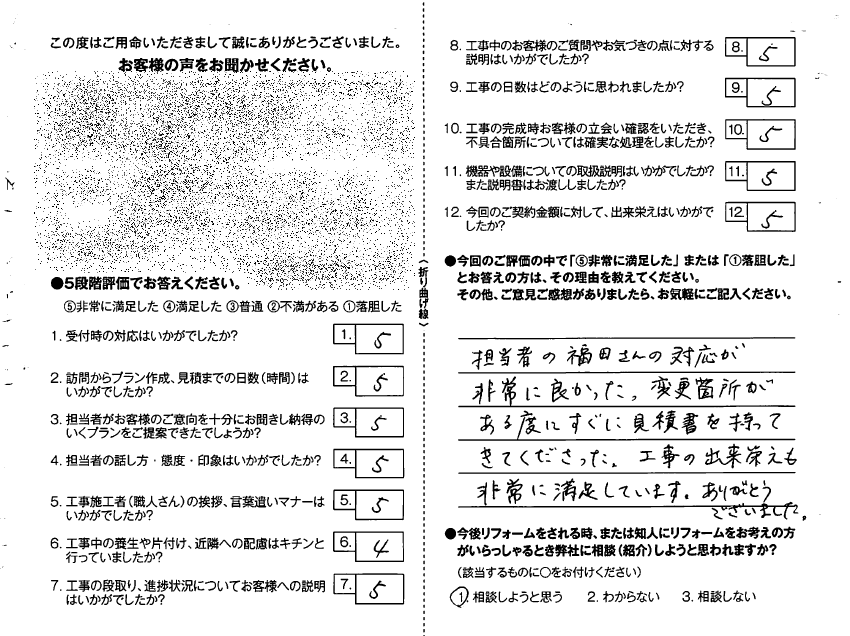 この度はご用命いただきまして誠にありがとうございました。
お客様の声をお聞かせください。
●5段階評価でお答えください。
⑤非常に満足した ④満足した ③普通 ②不満がある ①落胆した
1. 受付時の対応はいかがでしたか?
1. 5
2. 訪問からプラン作成、見積までの日数(時間)は
いかがでしたか?
2. 5
3. 担当者がお客様のご意向を十分にお聞きし納得の
いくプランをご提案できたでしょうか?
3. 5
4. 担当者の話し方・態度・印象はいかがでしたか?
4. 5
5. 工事施工者(職人さん)の挨拶、言葉遣いマナーは
いかがでしたか?
5. 5
6. 工事中の養生や片付け、近隣への配慮はキチンと
行っていましたか?
6. 4
7. 工事の段取り、進捗状況についてお客様への説明
はいかがでしたか?
7. 5
〈折り曲げ線〉
8. 工事中のお客様のご質問やお気づきの点に対する
説明はいかがでしたか?
8. 5
9. 工事の日数はどのように思われましたか?
9. 5
10. 工事の完成時お客様の立会い確認をいただき、
不具合箇所については確実な処理をしましたか?
10. 5
11. 機器や設備についての取扱説明はいかがでしたか?
また説明書はお渡ししましたか?
11. 5
12. 今回のご契約金額に対して、出来栄えはいかがで
したか?
12. 5
●今回のご評価の中で「⑤非常に満足した」または「①落胆した」
とお答えの方は、その理由を教えてください。
その他、ご意見ご感想がありましたら、お気軽にご記入ください。
担当者の福田さんの対応が
非常に良かった。変更箇所が
ある度にすぐに見積書を持って
きてくださった。工事の出来栄えも
非常に満足しています。ありがとう
ございました。
●今後リフォームをされる時、または知人にリフォームをお考えの方
がいらっしゃるとき弊社に相談(紹介)しようと思われますか?
(該当するものに○をお付けください)
1. 相談しようと思う 2. わからない 3. 相談しない